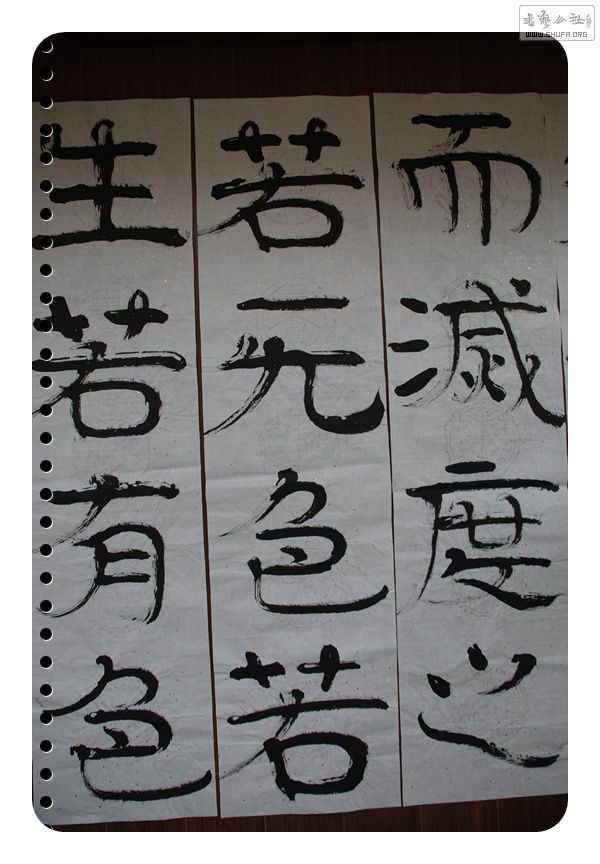 生若有色
若无色若
而滅度之
书艺公社
WWW.SHUFA.ORG